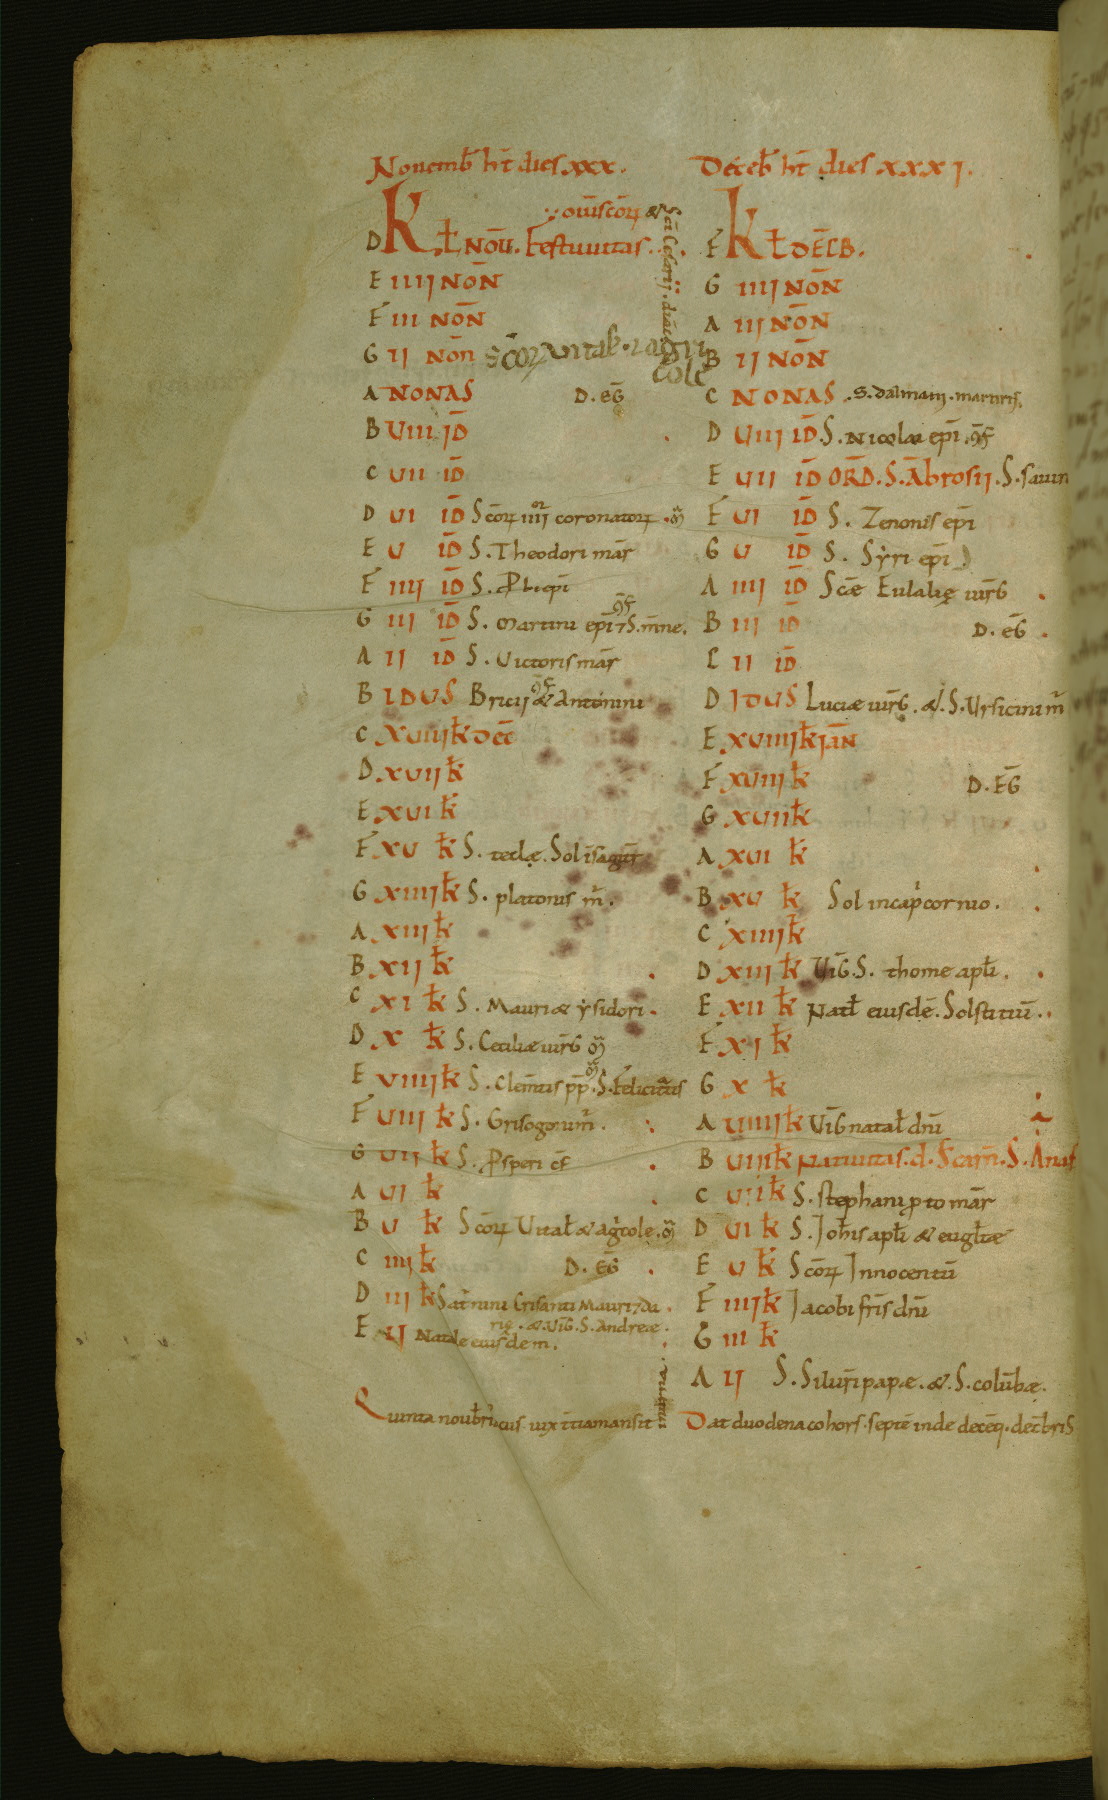 Nouemb̄ h̄t dies xxx.
D Kł NOŪ. Festiuitas oīuscōꝝ &
Sc̄i Cesarij. diāc
E IIIJ NON̄
F III NON̄
G IJ NON̄ scōꝝ uitał. ⁊ agri
cole
A NONAS D. eḠ
B UIII ID̄
C UII ID̄
D UI ID̄ Scōꝝ IIIJ or coronatoꝝ. m̄
E U ID̄ S. Theodori mār
F IIIJ ID̄ S.
G III ID̄ S. Martini ep̄i ⁊ S. mēne.
A IJ ID̄ S. Uictoris mār
B IDUS Bricij & Antonini
C XUIIIJ k̄ DEC̄
D XUIJ k̄
E XUI k̄
F XU k̄ S. teclę. Sol īsagit̄
G XIIIJ k̄ S. platonis m̄.
A XIIJ k̄
B XIJ k̄
C XI k̄ S. Mauri & ysidori.
D X k̄ S. Ceciliæ uirḠ m̄
E VIIIJ k̄ S. Clem̄tis pp̄. S. Felicitatis
F UIIJ k̄ S. Grisogoni m̄.
G UII k̄ S. Ꝓsperi c̄f
A UI k̄
B U k̄ Scōꝝ Uitał & agricole. m̄
C IIIJ k̄ D. EḠ
D IIJ k̄ Sat̄nini Crisanti Mauri ⁊ da
rię. & UiḠ. S. Andreæ.
E IJ Natale eiusdem.
Quinta noub̄ri
Decēb̄ h̄t dies xxxJ.
F Kł DEC̄B.
G IIIJ NON̄
A IIJ NON̄
B IJ NON̄
C NONAS. S. dalmatij. martiris.
D UIIJ ID̄. S. Nicolai ep̄i. c̄f
E UIJ ID̄ ORD̄. S. Āb̄rosij. S. sauin
F UI ID̄ S. Zenonis ep̄i
G U ID̄ S. Syri ep̄i
A IIIJ ID̄ Scǣ Eulalię uirḠ
B IIJ ID̄ D. eḠ
C IJ ID̄
D IDUS Luciæ uirḠ. &. S. Ursicini m̄
E XUIIIJ k̄ IAN̄
F XUIIJ k̄ D. EḠ
G XUIJ k̄
A XUI k̄
B XU k̄ Sol in capricornio.
C XIIIJ k̄
D XIIJ k̄ UiḠ. S. thome apłi.
E XII k̄ Natł eiusdē. Solstitiū.
F XJ k̄
G X k̄
A UIIIJ k̄ UiḠ natał dn̄i
B UIIJ k̄ Natiuitas. d. S̄carn̄. S. Anas̄
C UII k̄ S. stephani ꝓto mār
D UI k̄ S. Joh̄is apłi & eugłtæ
E U k̄ Scōꝝ Innocentū
F IIIJ k̄ Jacobi fr̄is dn̄i
G III k̄
A IJ S. Silur̄i papæ. &. S. colūbæ.
Dat duodena cohors. septē inde decēq. decēbris